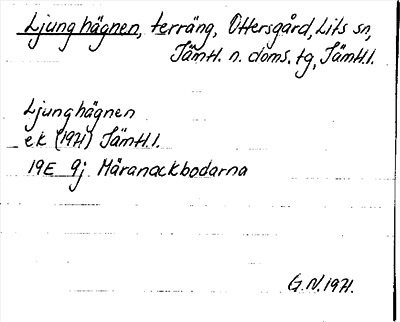 Ljunghägnen, terräng, Ottersgård, Lits sn,
Jämtl. n. doms. tg, Jämtl.l.
Ljunghägnen
ek (1971) Jämtl.l.
19E 9j Märanackbodarna
G.N.1971.